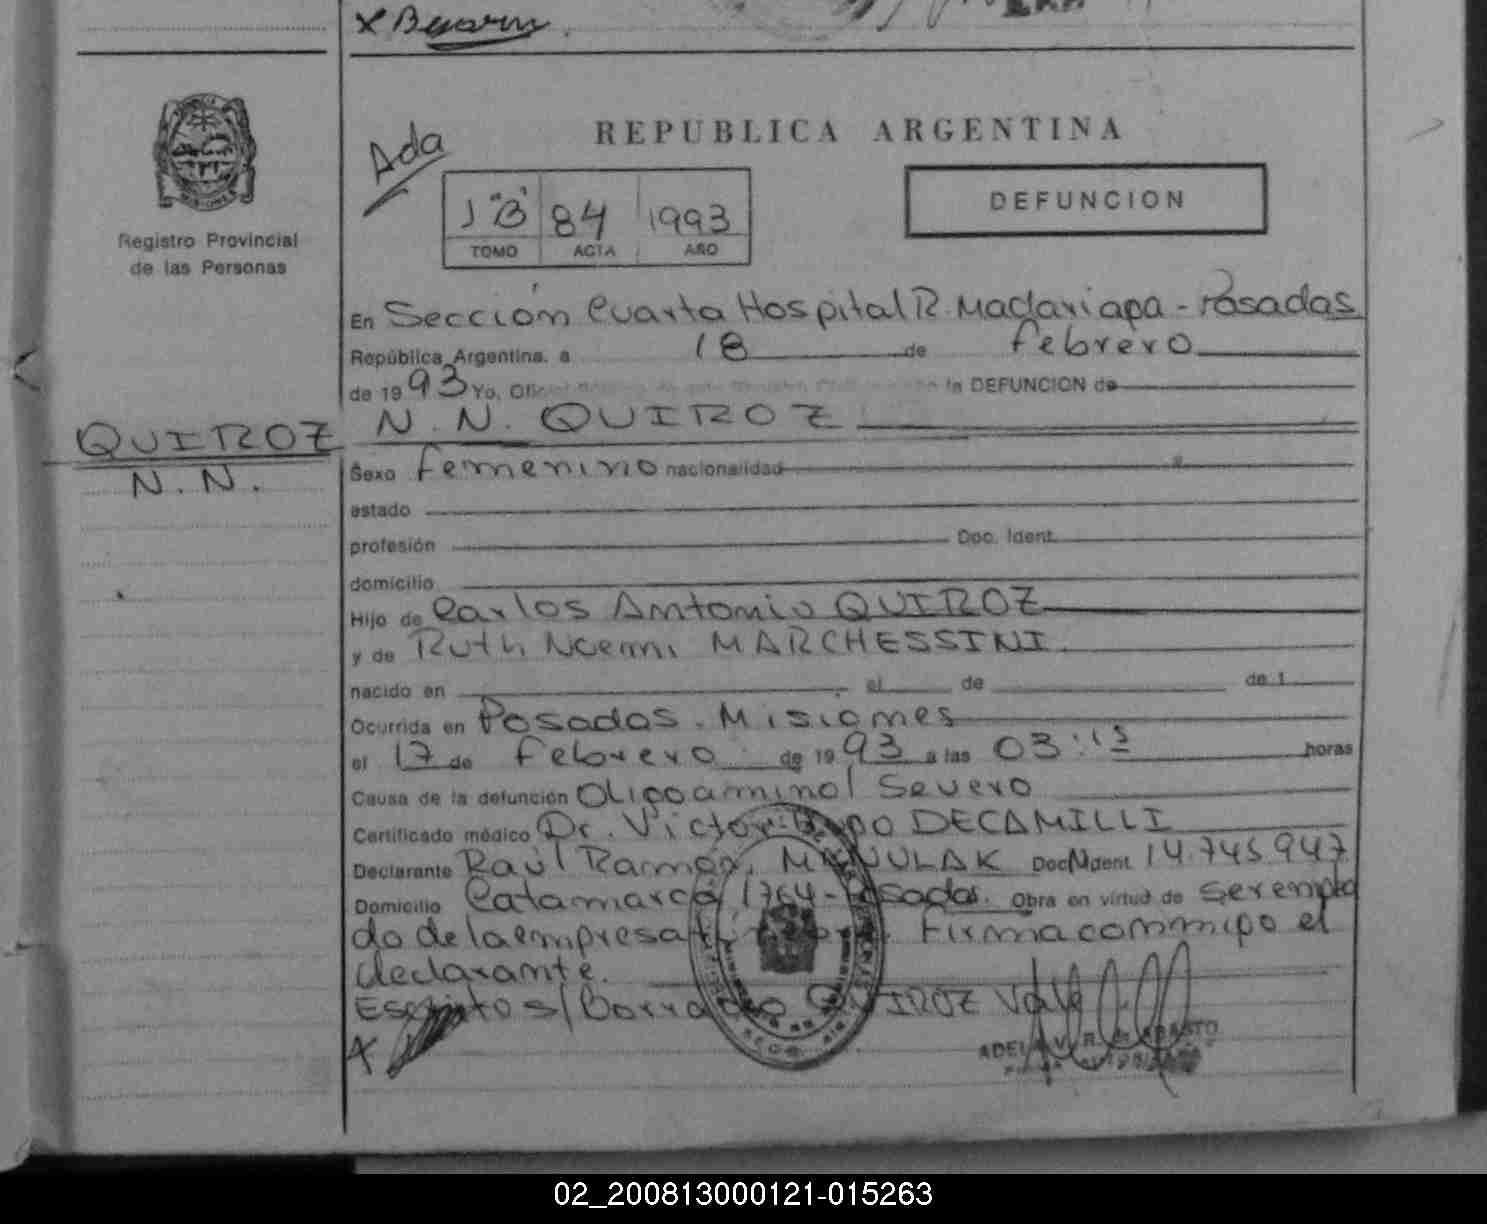 REPUBLICA ARGENTINA
Ada
J "B" 84 1993
TOMO ACTA AÑO
DEFUNCION
Registro Provincial
de las Personas
En Sección Cuarta Hospital R. Madariaga - Posadas
República Argentina, a 18 de febrero
de 1993 Yo, Oficial la DEFUNCION de
N. N. QUIROZ
QUIROZ
N. N.
Sexo femenino nacionalidad
estado
profesión Doc. Ident.
domicilio
Hijo de Carlos Antonio QUIROZ
y de Ruth Noemi MARCHESSINI.
nacido en el de de 1
Ocurrida en Posadas. Misiones
el 17 de febrero de 1993 a las 03:15 horas
Causa de la defunción Oligoamniol Severo
Certificado médico Dr. Victor Hugo DECAMILLI
Declarante Raúl Ramón Doc N Ident 14.745947
Domicilio Catamarca 1764 - Posadas. Obra en virtud de ser emplea
do de la empresa Firma conmigo el
declarante.
Escrito s/Borrado QUIROZ Vale
ADELA V. R.
02_200813000121-015263